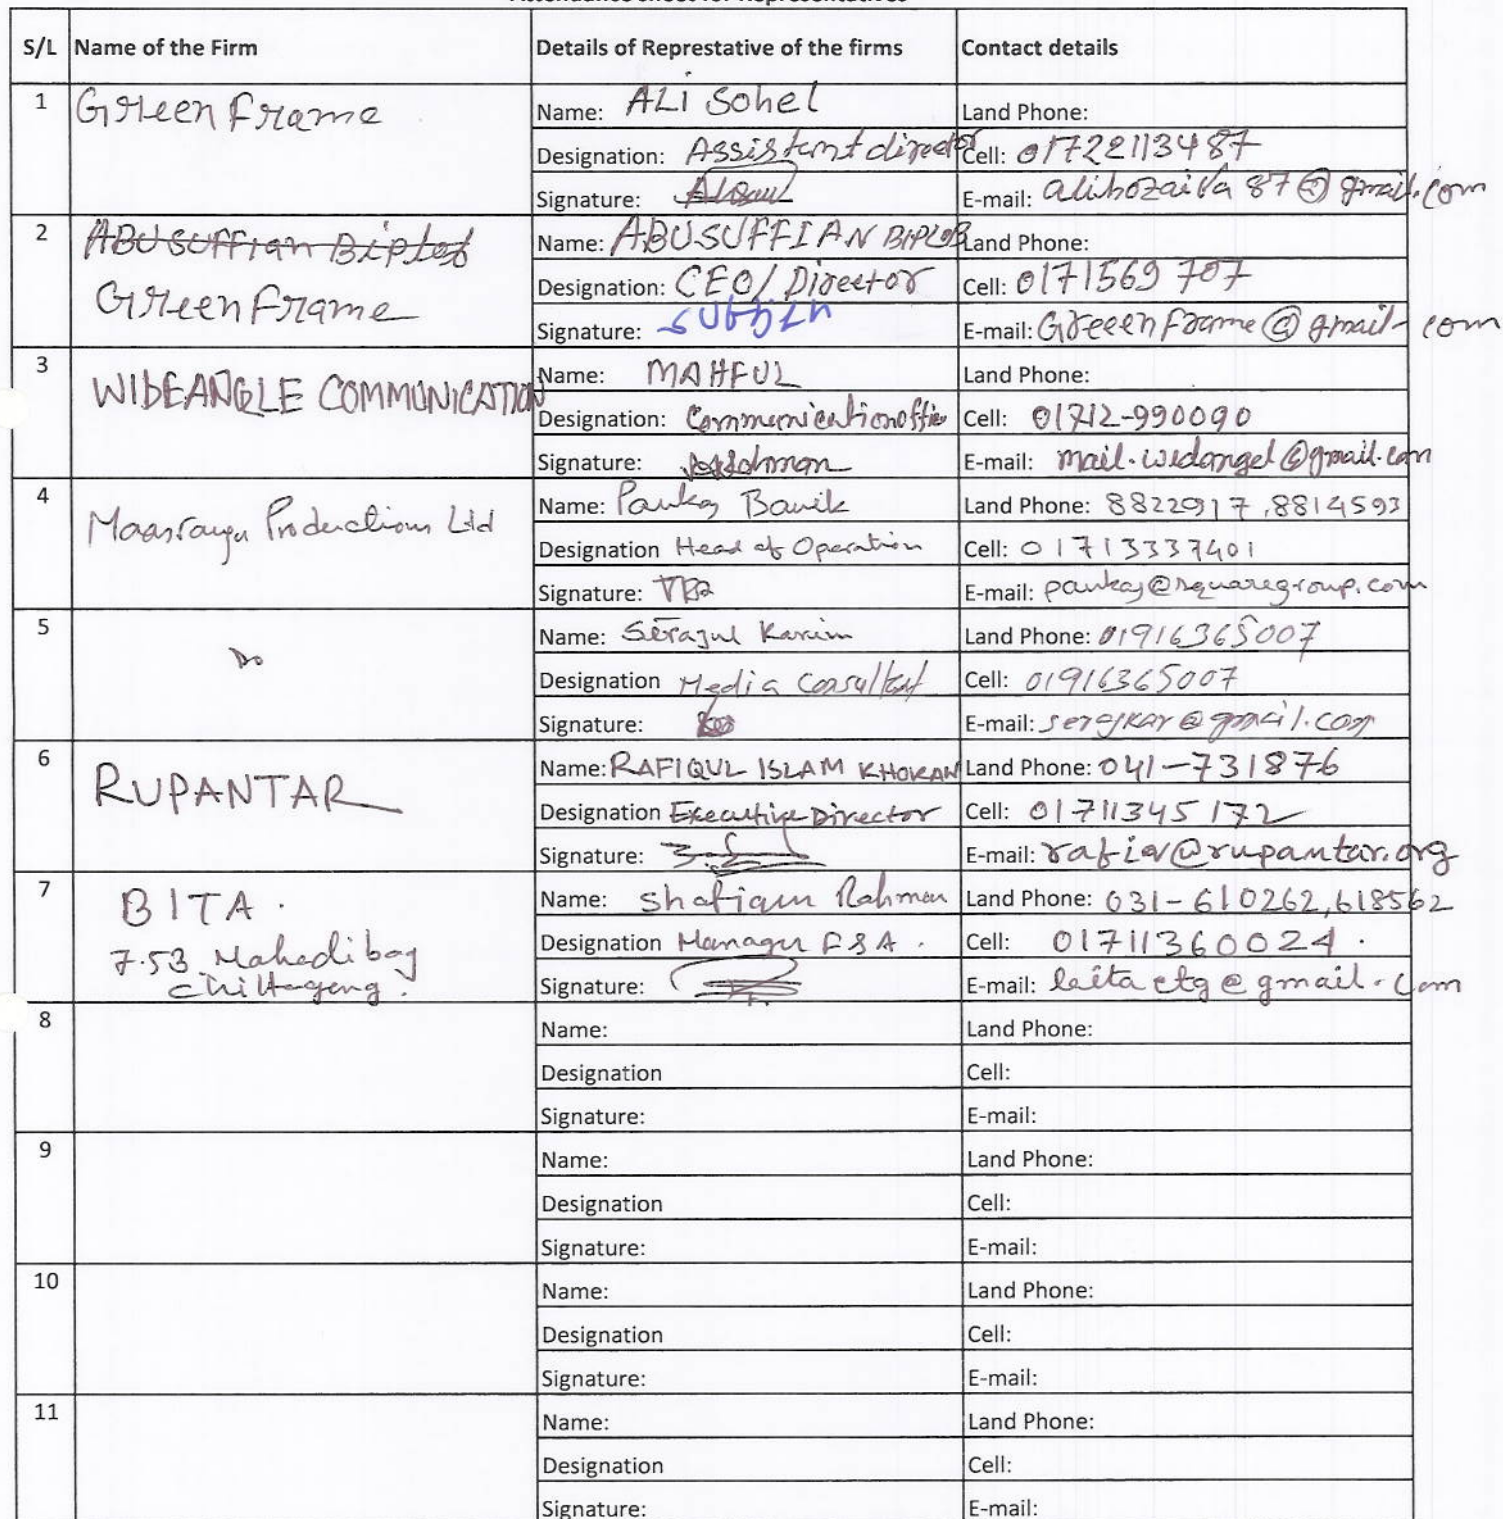 Attendance Sheet for Representatives
S/L Name of the Firm Details of Represtative of the firms Contact details
1 Green Frame Name: ALi Sohel Land Phone:
Designation: Assistant director Cell: 01722113487
Signature: E-mail: 87@gmail.com
2 ABU SUFFian Biplob Name: ABUSUFFIAN BIPLOB Land Phone:
Green Frame Designation: CEO/Director Cell: 0171569 707
Signature: E-mail: Greeen Frame@gmail-com
3 WIDEANGLE COMMUNICATION Name: MAHFUL Land Phone:
Designation: Communication Cell: 01712-990090
Signature: E-mail: mail.widangel@gmail.com
4 Maasranga Productions Ltd Name: Pankaj Banik Land Phone: 8822917, 8814593
Designation Head of Operation Cell: 01713337401
Signature: E-mail: pankaj@squaregroup.com
5 Do Name: Serazul Karim Land Phone: 01916365007
Designation Media Consultant Cell: 01916365007
Signature: E-mail: serajkar@gmail.com
6 RUPANTAR Name: RAFIQUL ISLAM KHOKAN Land Phone: 041-731876
Designation Executive Director Cell: 01711345172
Signature: E-mail: rafiq@rupantar.org
7 BITA. Name: Shafiqur Rahman Land Phone: 031-610262, 618562
7.53 Mahedibag Designation Manager F&A. Cell: 01711360024.
Chittagong. Signature: E-mail: bita ctg@gmail.com
8 Name: Land Phone:
Designation Cell:
Signature: E-mail:
9 Name: Land Phone:
Designation Cell:
Signature: E-mail:
10 Name: Land Phone:
Designation Cell:
Signature: E-mail:
11 Name: Land Phone:
Designation Cell:
Signature: E-mail: